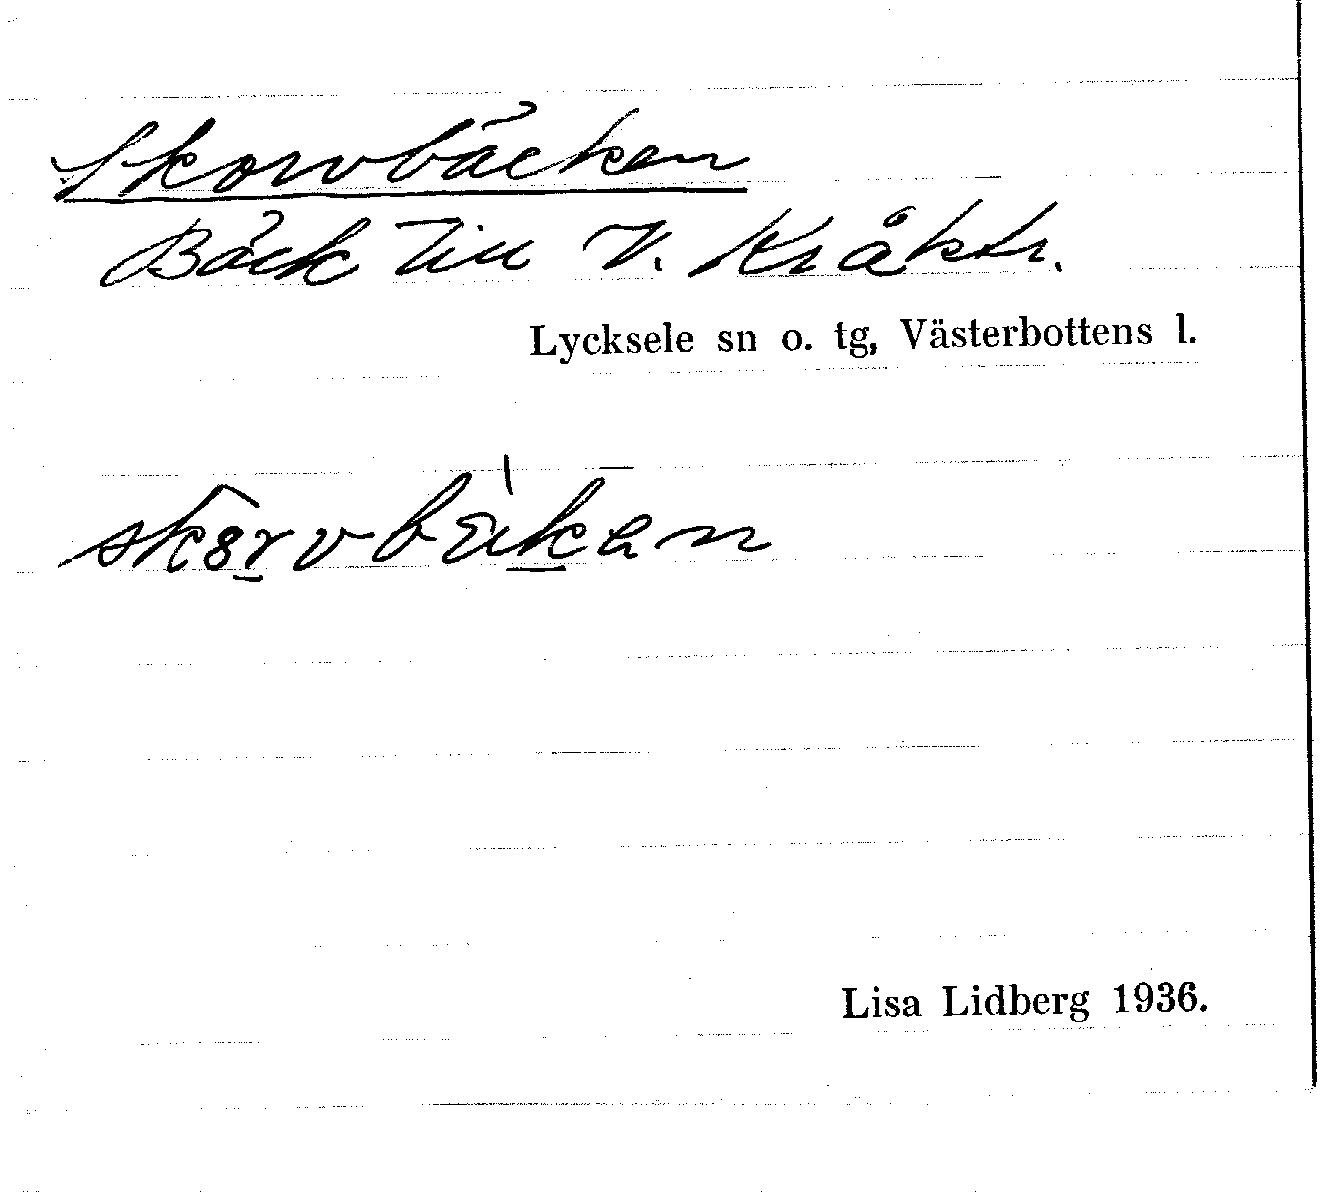 Skorvbäcken
Bäck till V. Kråktr.
Lycksele sn o. tg, Västerbottens l.
Lisa Lidberg 1936.